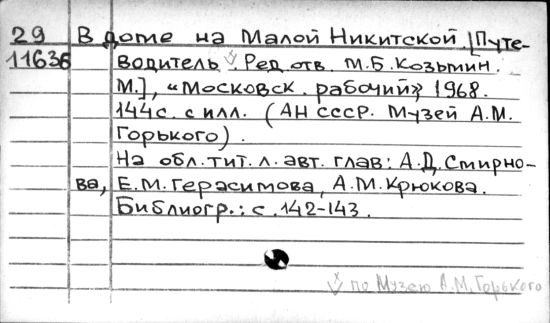 29 В доме на Малой Никитской. [Путе-
11636 водитель √. Ред. отв. М.Б. Козьмин.
М.], «Московск. рабочий» 1968.
144 с. с илл. (АН СССР. Музей А.М.
Горького).
На обл. тит. л. авт. глав: А.Д. Смирно-
ва, Е.М. Герасимова, А.М. Крюкова.
Библиогр.: с. 142-143.
√ по Музею А.М. Горького